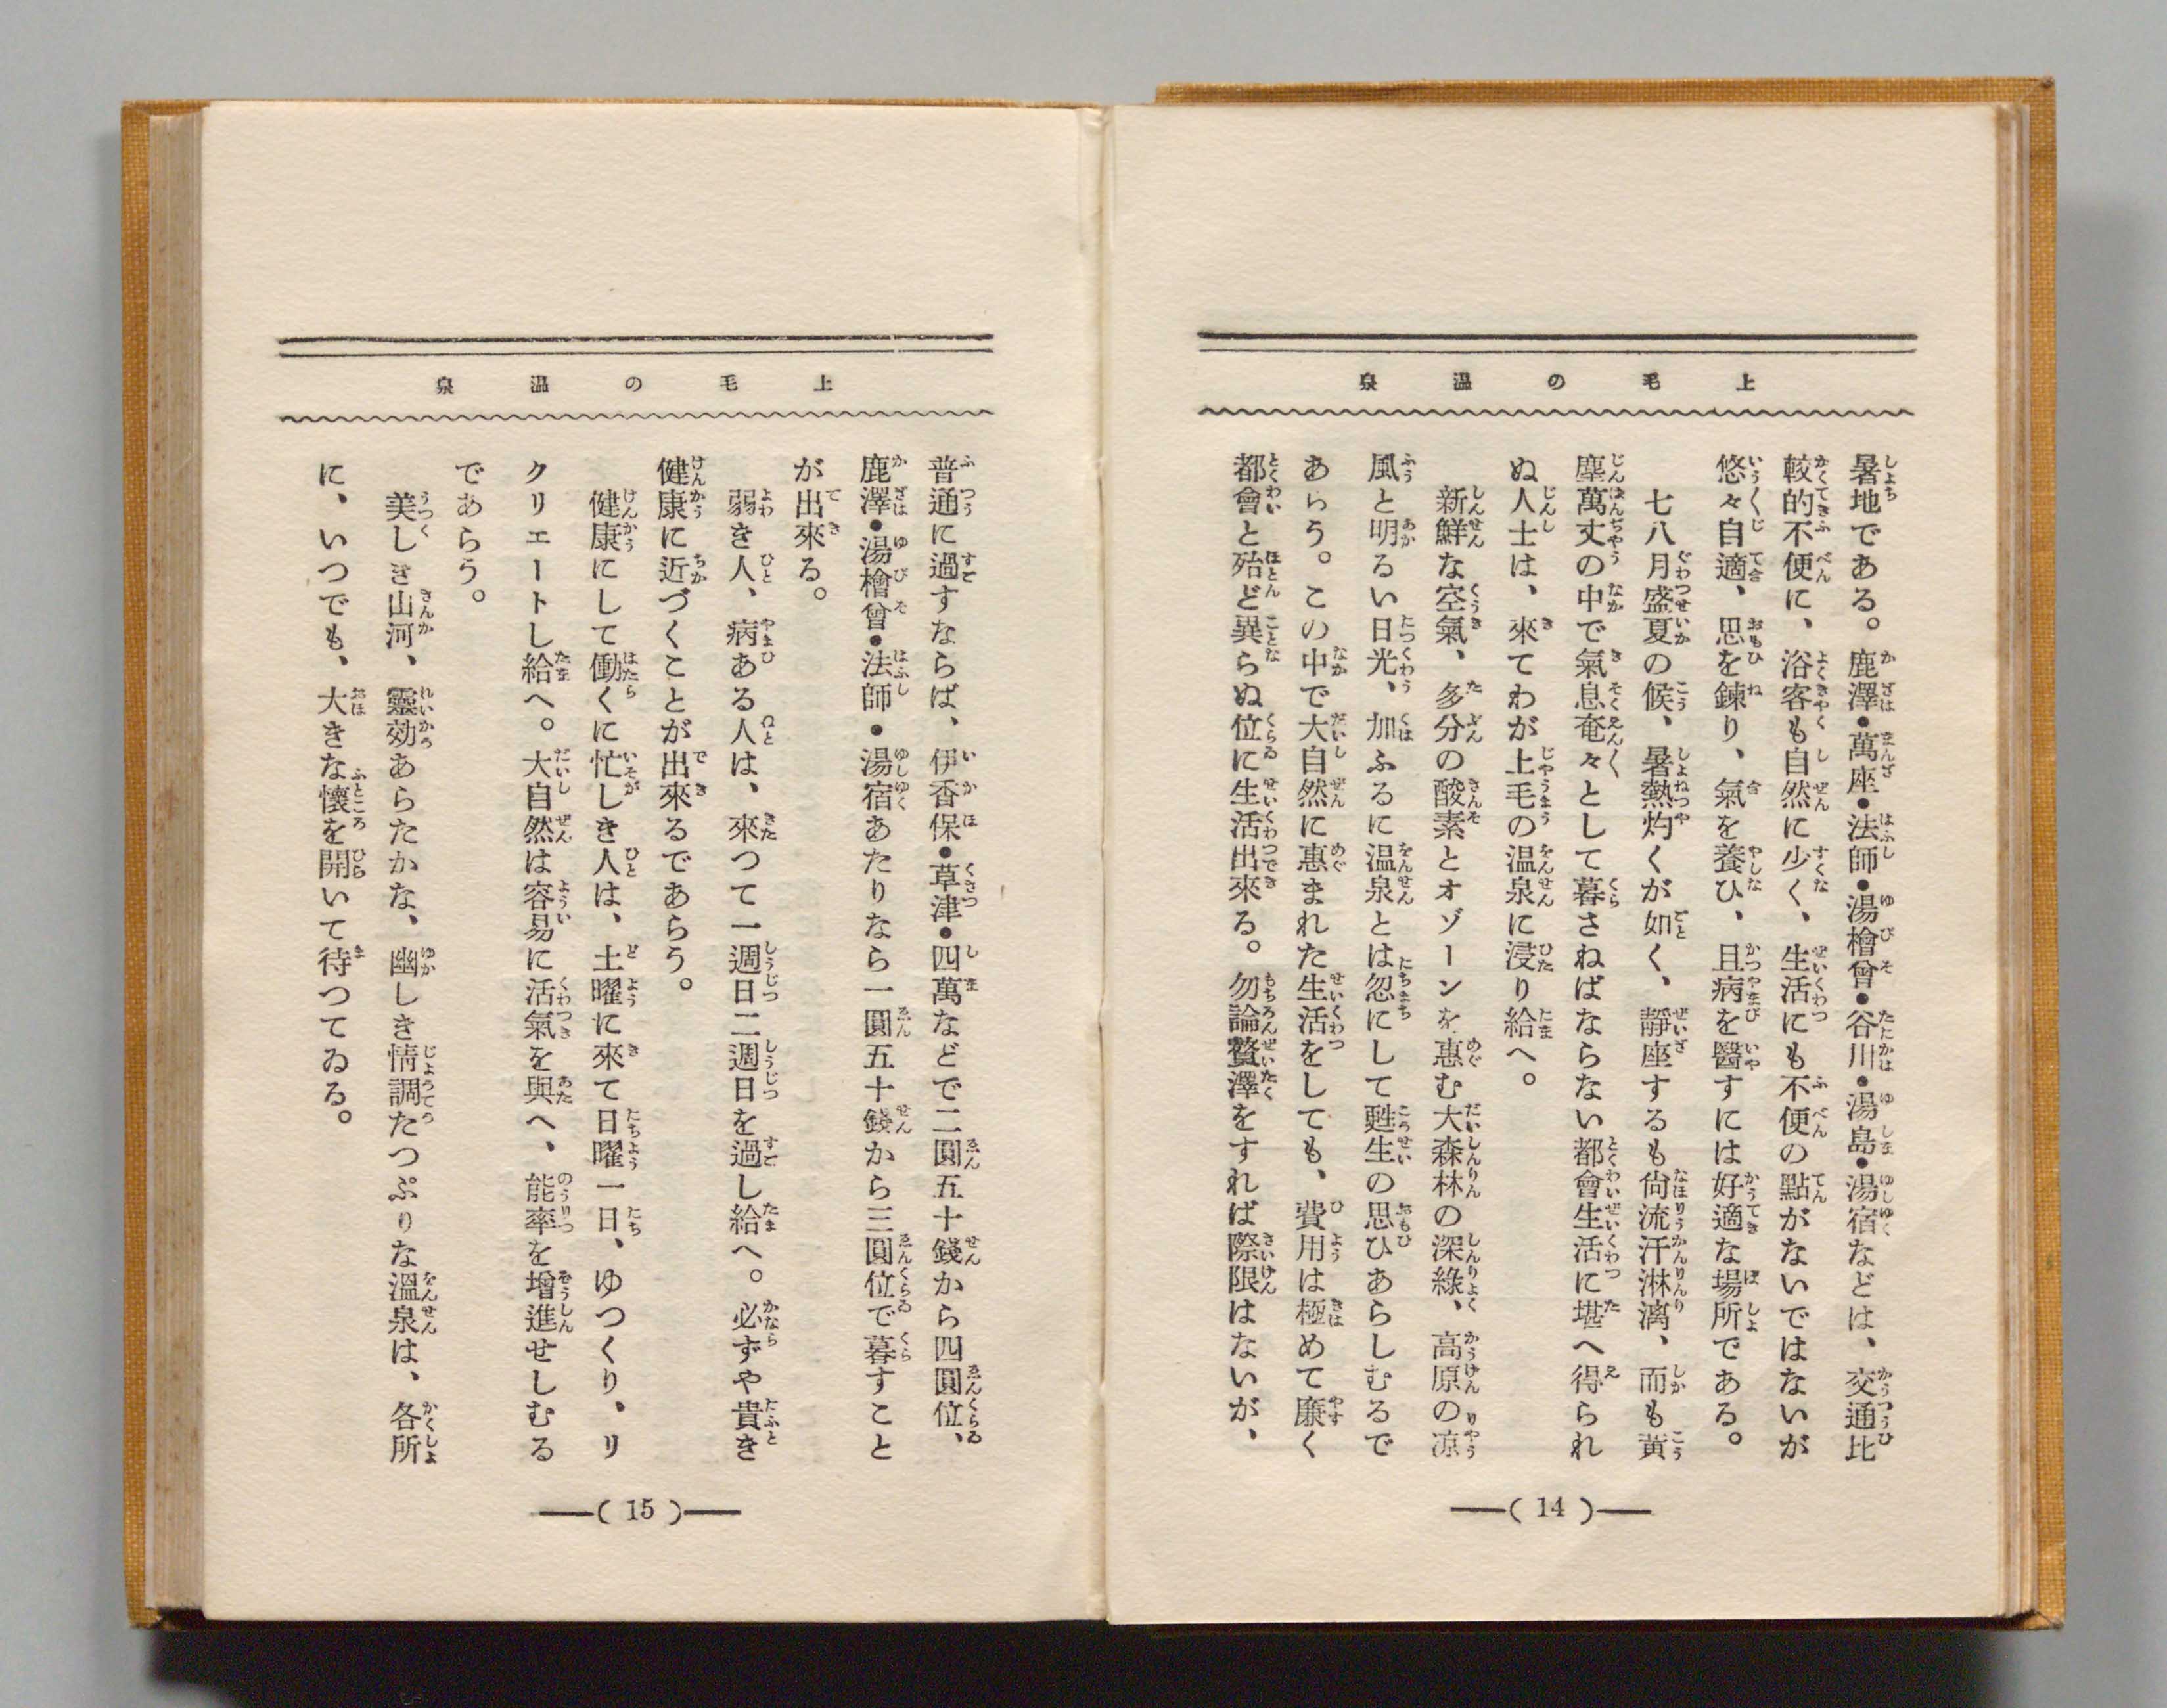 上毛の温泉
暑地である。鹿澤・萬座・法師・湯檜曾・谷川・湯島・湯宿などは、交通比
較的不便に、浴客も自然に少く、生活にも不便の點がないではないが
悠々自適、思を鍊り、氣を養ひ、且病を醫すには好適な場所である。
七八月盛夏の候、暑熱灼くが如く、靜座するも尙流汗淋漓、而も黃
塵萬丈の中で氣息奄々として暮さねばならない都會生活に堪へ得られ
ぬ人士は、來てわが上毛の温泉に浸り給へ。
新鮮な空氣、多分の酸素とオゾーンを惠む大森林の深綠、高原の凉
風と明るい日光、加ふるに温泉とは忽にして甦生の思ひあらしむるで
あらう。この中で大自然に惠まれた生活をしても、費用は極めて廉く
都會と殆ど異らぬ位に生活出來る。勿論贅澤をすれば際限はないが、
(14)
上毛の温泉
普通に過すならば、伊香保・草津・四萬などで二圓五十錢から四圓位、
鹿澤・湯檜曾・法師・湯宿あたりなら一圓五十錢から三圓位で暮すこと
が出來る。
弱き人、病ある人は、來つて一週日二週日を過し給へ。必ずや貴き
健康に近づくことが出來るであらう。
健康にして働くに忙しき人は、土曜に來て日曜一日、ゆつくり、リ
クリエートし給へ。大自然は容易に活氣を與へ、能率を增進せしむる
であらう。
美しき山河、靈効あらたかな、幽しき情調たつぷりな溫泉は、各所
に、いつでも、大きな懷を開いて待つてゐる。
(15)